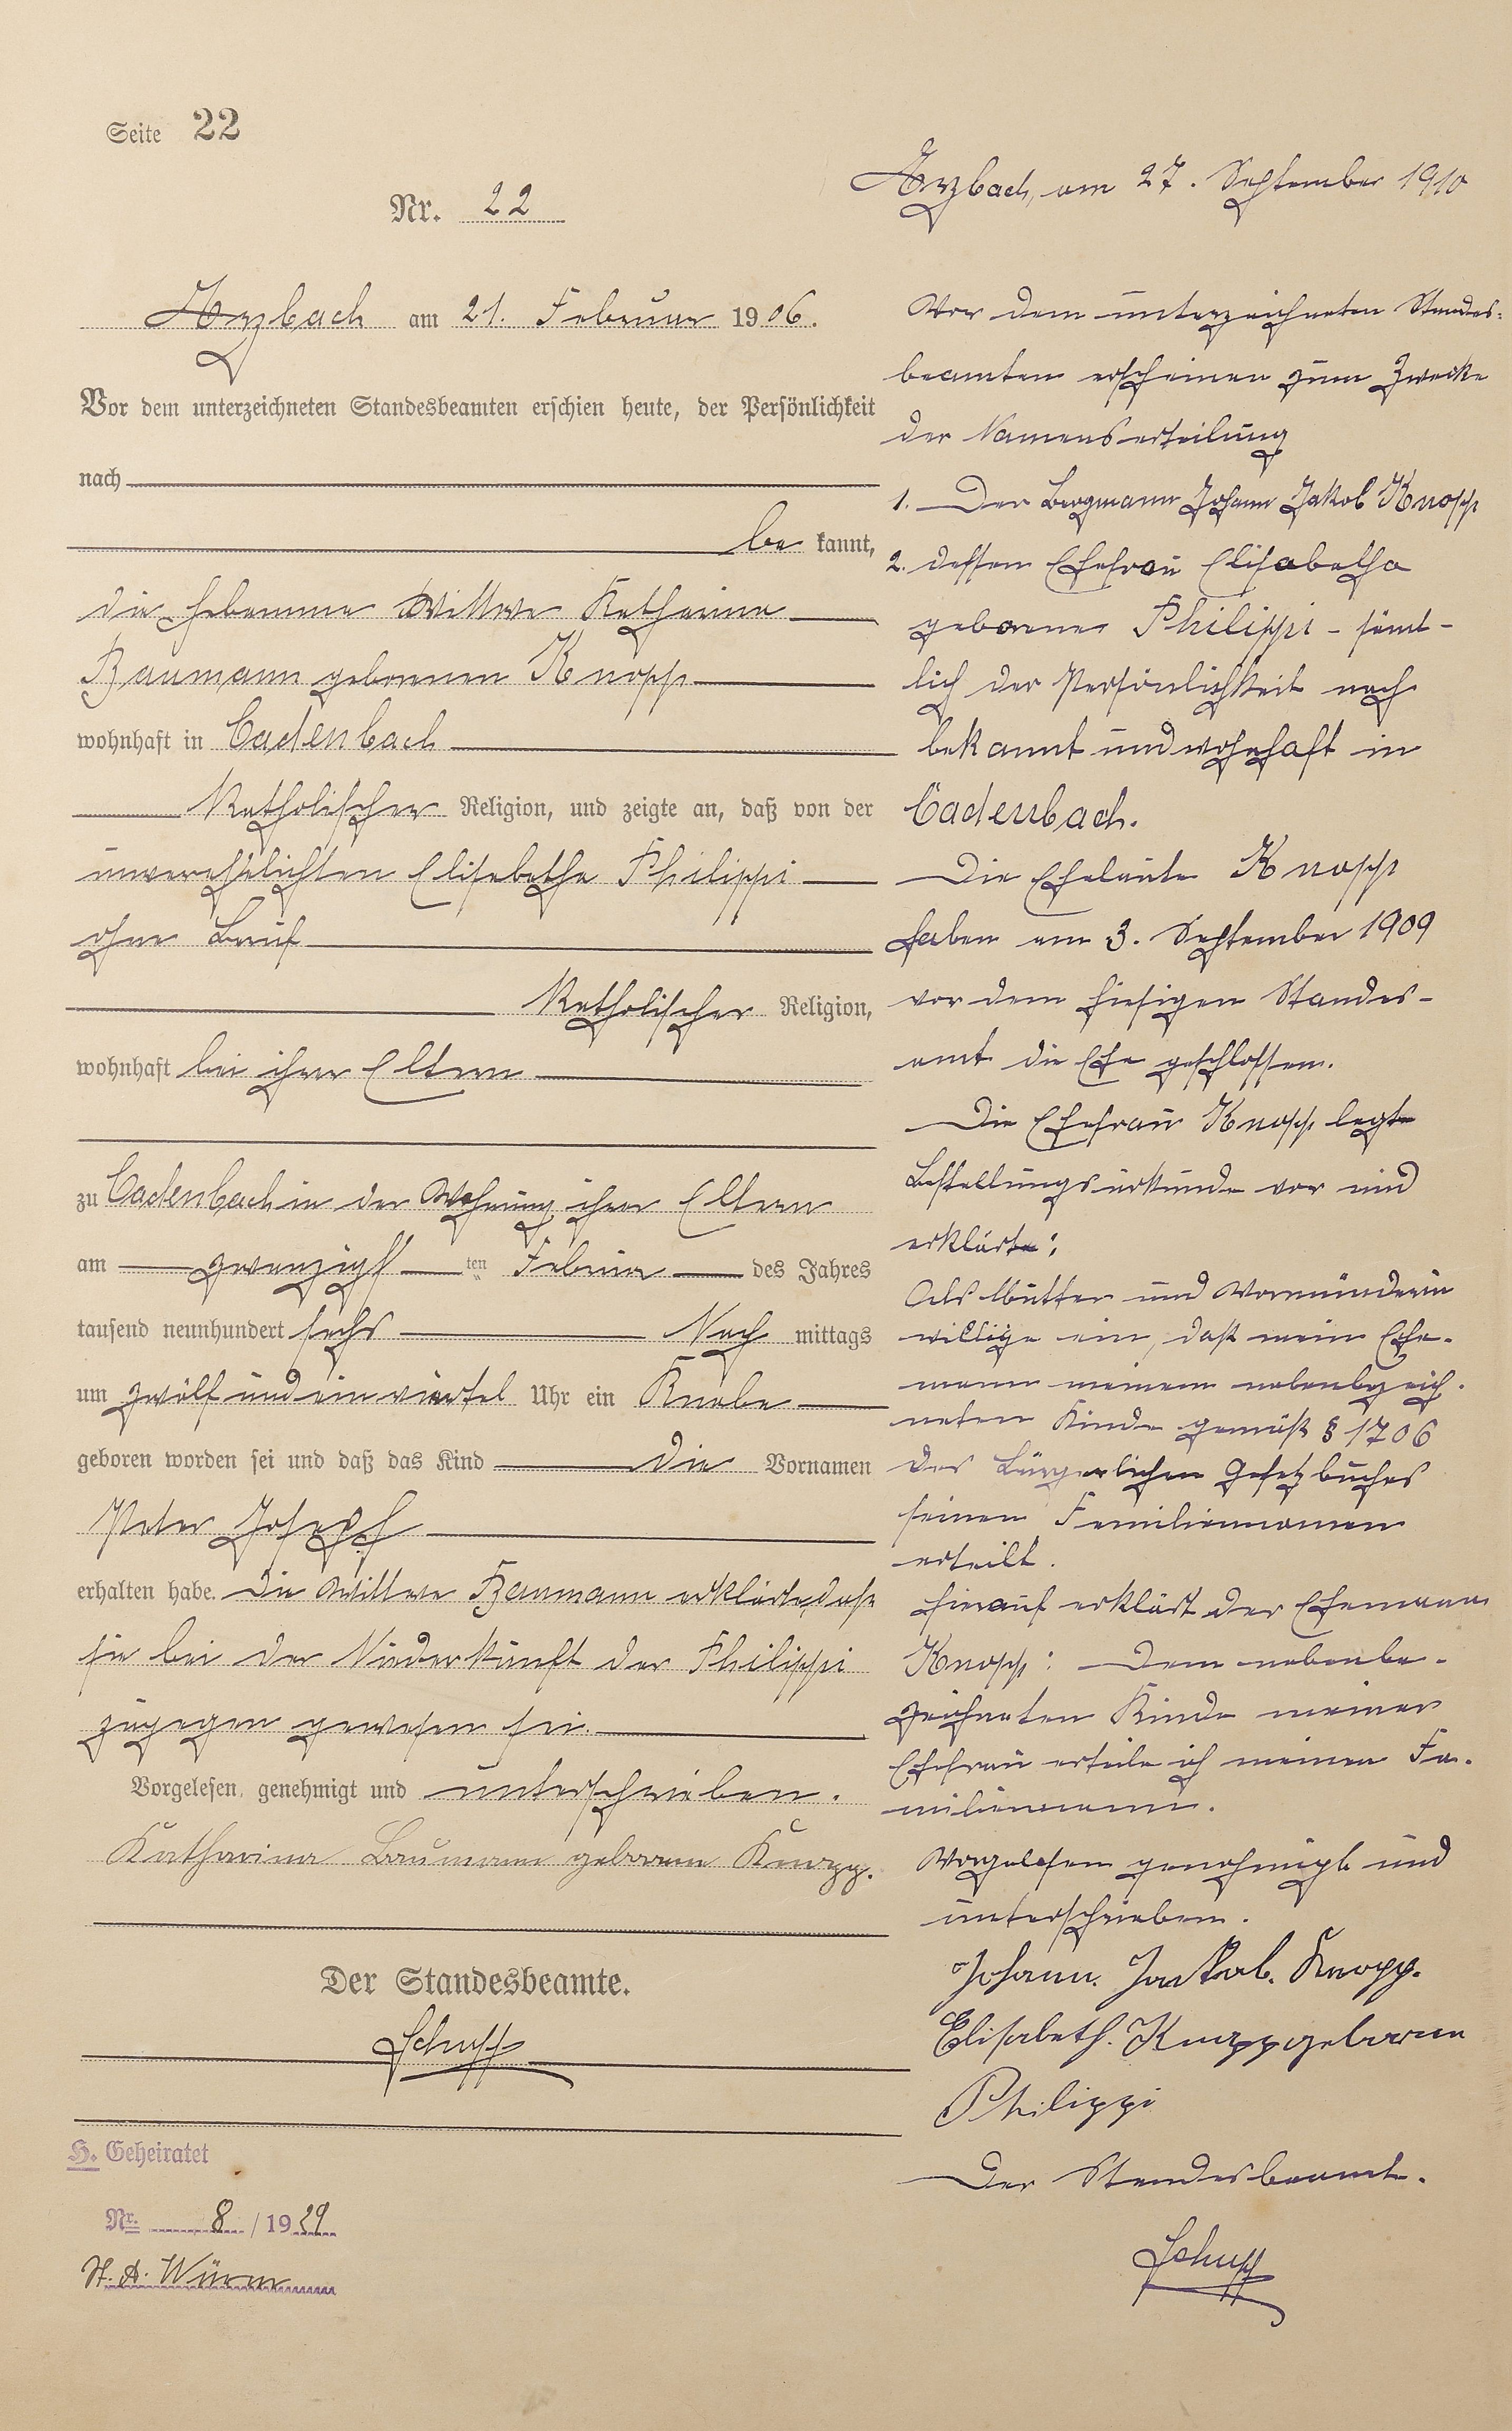 Seite 22
Nr. 22
Arzbach am 21. Februar 1906.
Vor dem unterzeichneten Standesbeamten erschien heute, der Persönlichkeit
nach
be kannt,
die Hebamme Wittwe Katharina
Baumann geborenen Knopp
wohnhaft in Cadenbach
Katholischer Religion, und zeigte an, daß von der
unverehelichten Elisabetha Philippi
ohne Beruf
Katholischer Religion,
wohnhaft bei ihren Eltern
zu Cadenbach in der Wohnung ihrer Eltern
am zwanzigst ten Februar des Jahres
tausend neunhundert sechs Nach mittags
um zwölf und ein viertel Uhr ein Knabe
geboren worden sei und daß das Kind die Vornamen
Peter Joseph
erhalten habe. Die Wittwe Baumann erklärte, daß
sie bei der Niederkunft der Philippi
zugegen gewesen sei.
Vorgelesen, genehmigt und unterschrieben.
Katharina Baumann geborene Knopp.
Der Standesbeamte.
Schupp
H. Geheiratet
Nr. 8 / 1929
St. A.
Arzbach, am 27. September 1910
Vor dem unterzeichneten Standes-
beamten erscheinen zum Zwecke
der Namenserteilung
1. Der Bergmann Johann Jakob Knopp
2. dessen Ehefrau Elisabetha
geborene Philippi - sämt-
lich der Persönlichkeit nach
bekannt und wohnhaft in
Cadenbach.
Die Eheleute Knopp
haben am 3. September 1909
vor dem hiesigen Standes-
amt die Ehe geschlossen.
Die Ehefrau Knopp legte
Bestallungsurkunde vor und
erklärte:
Als Mutter und Vormünderin
willige ein, daß mein Ehe-
mann meinem nebenbezeich-
neten Kinde gemäß § 1706
des Bürgerlichen Gesetzbuches
seinen Familiennamen
erteilt.
Hierauf erklärt der Ehemann
Knopp: Dem nebenbe-
zeichneten Kinde meiner
Ehefrau erteile ich meinen Fa-
miliennamen.
Vorgelesen genehmigt und
unterschrieben.
Johann. Jakob. Knopp.
Elisabeth. Knopp geborene
Philippi
Der Standesbeamte.
Schupp